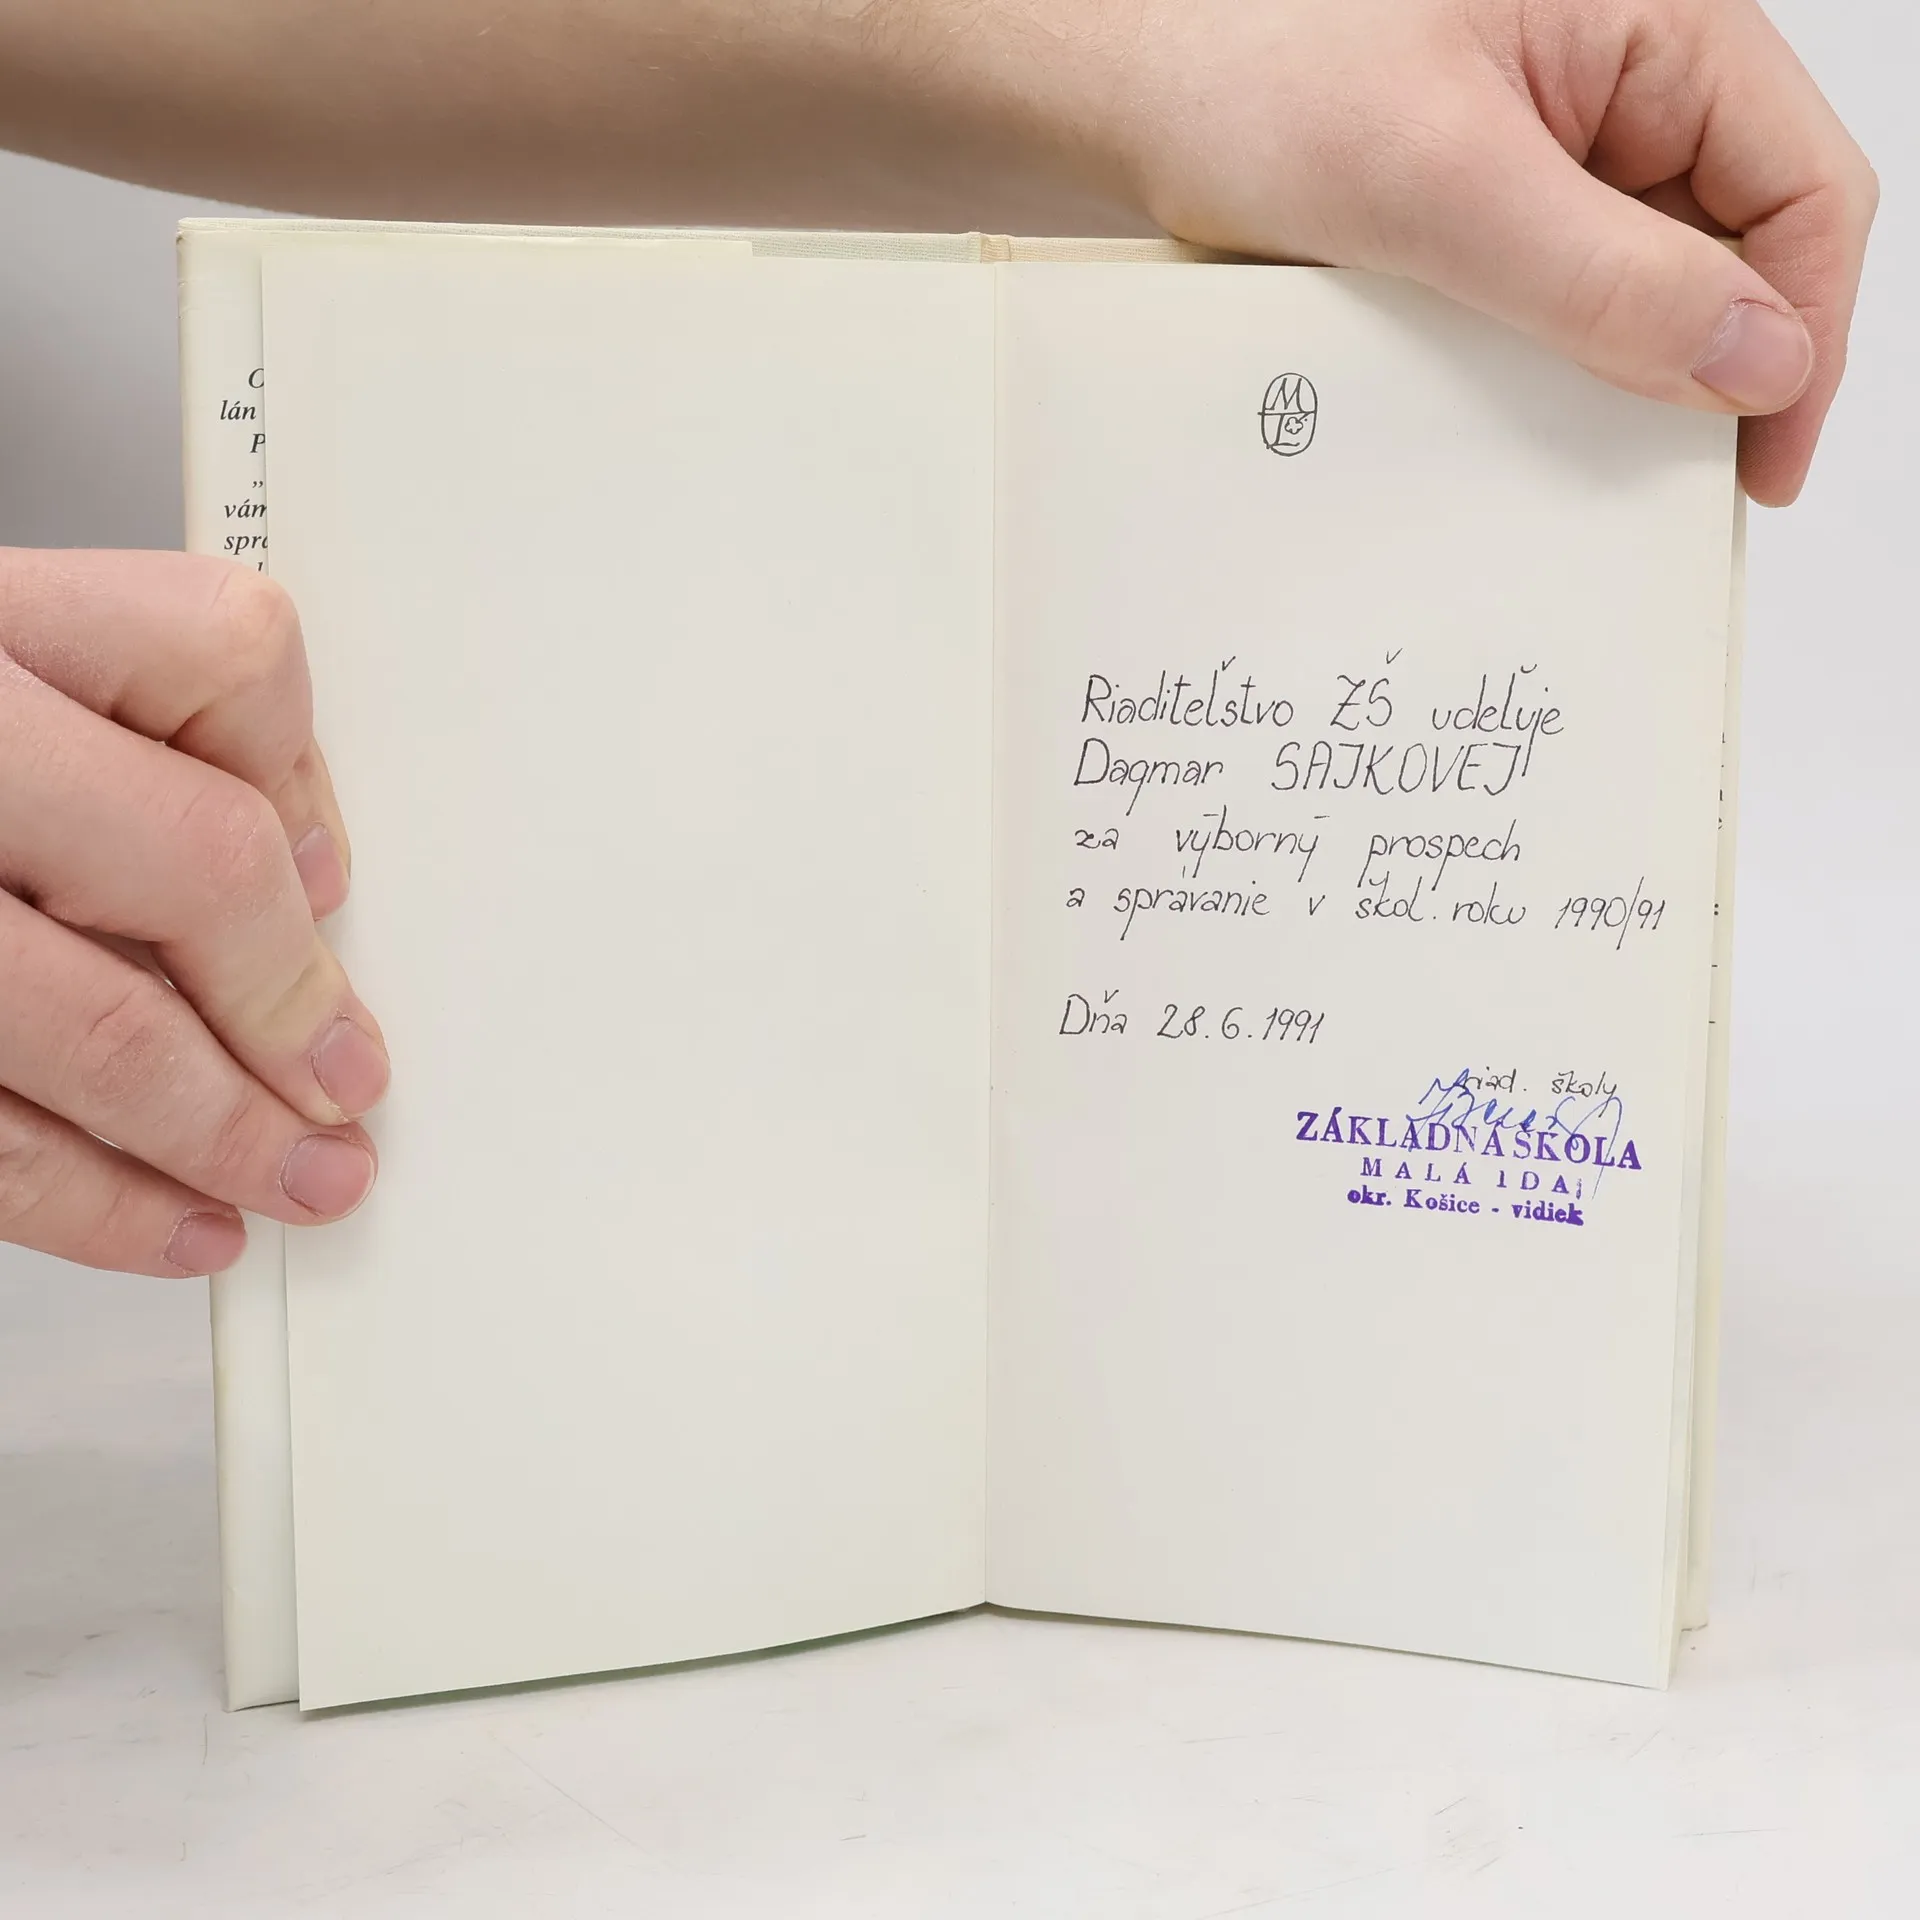 lán
vám
ML
Riaditeľstvo ZŠ udeľuje
Dagmar SAJKOVEJ
za výborný prospech
a správanie v škol. roku 1990/91
Dňa 28.6.1991
riad. školy
ZÁKLADNÁ ŠKOLA
MALÁ IDA
okr. Košice - vidiek